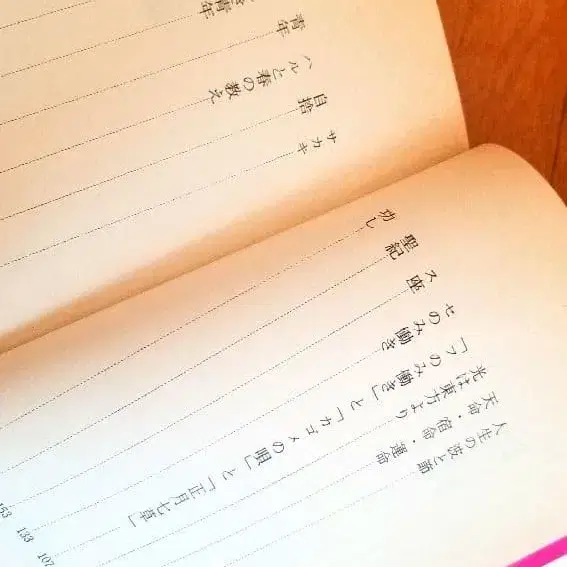 人生の波と節
天命・宿命・運命
光は東方より
「ッのみ働き」と「カゴメの唄」と「正月七草」 107
セのみ働き 133
ス座 153
聖紀
功し
サカキ
自捨
ハルと春の教え
青年
青年